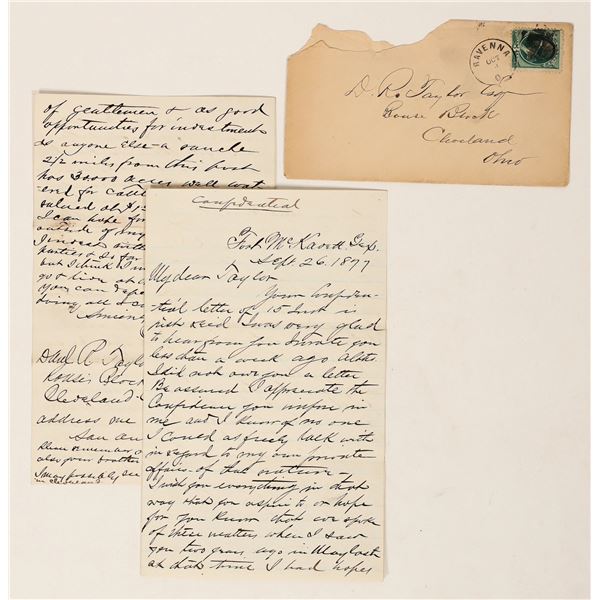 RAVENNA
OCT
O
D. R. Taylor Esq
House Block
Cleveland
Ohio
of gentlemen & as good
opportunities for investment
as anyone else - a ranche
2 1/2 miles from this post
has 30000 acres well wat
ered for cattle
valued at $1
I can hope for
outside of my
I invest with
parties & is for
but I think I
go & live at
you can
doing all I
Sincerely
Danl R. Taylor
Rouse's Block
Cleveland
address me
San An
also your brother
I may possibly see
in Cleveland
Confidential
Fort McKavett Tex.
Sept 26. 1877
My dear Taylor
Your Confiden-
tial letter of 15 Inst is
just recd I was very glad
to hear from you I wrote you
less than a week ago altho
I did not owe you a letter
Be assured I appreciate the
Confidence you impose in
me and I know of no one
I could as freely talk with
in regard to my own private
affairs of that nature -
I wish you everything in that
way that you aspire to or hope
for you know that we spoke
of these matters when I saw
you two years ago in May last
at that time I had hopes